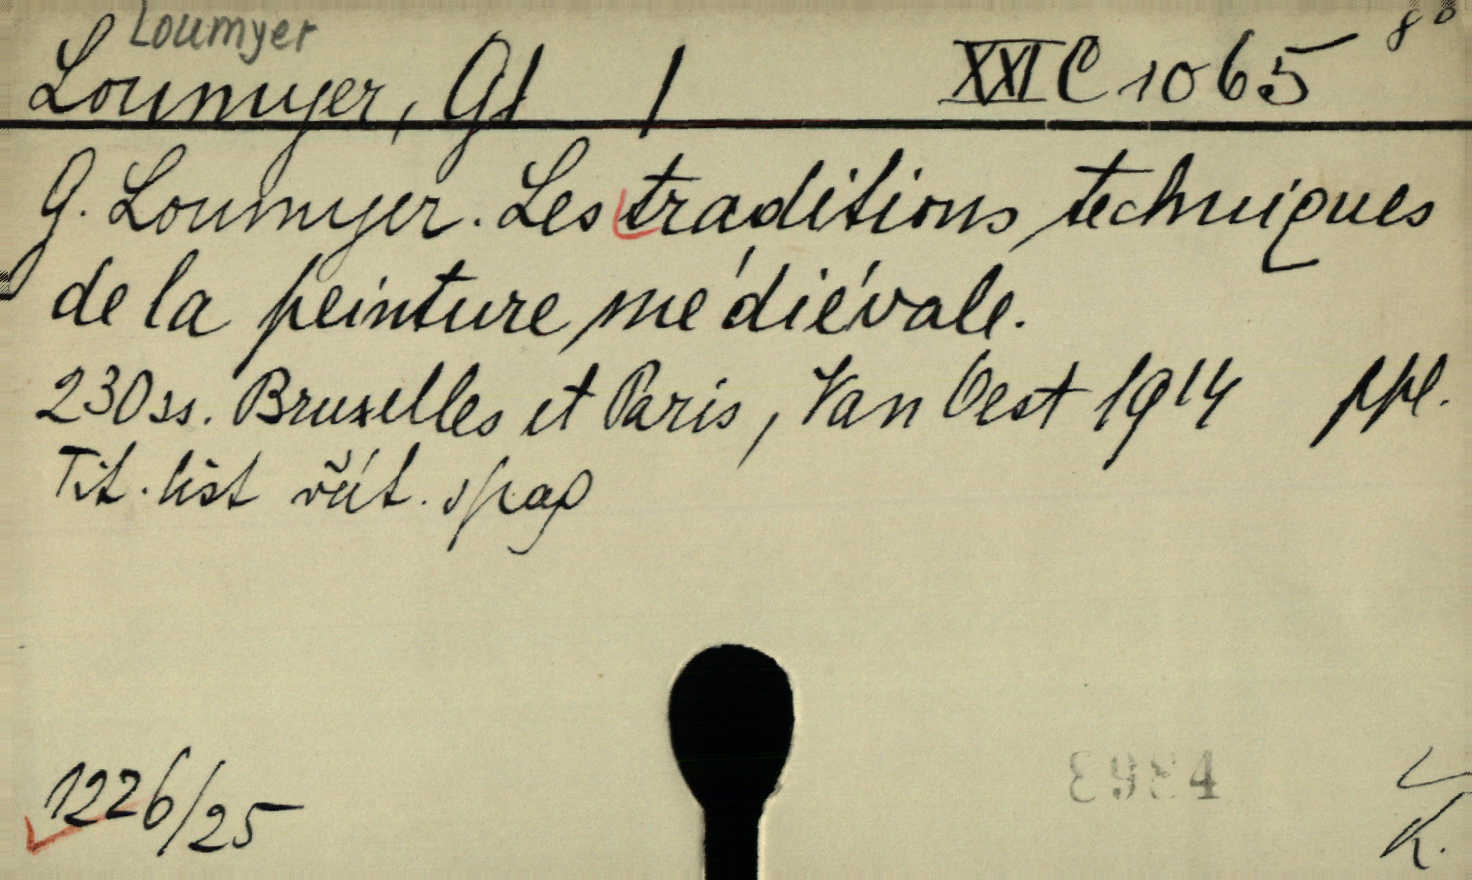 Loumyer
Loumyer, G. 1 XXI C 1065 8°
G. Loumyer. Les traditions techniques
de la peinture médiévale.
230 ss. Bruxelles et Paris, Van Oest 1914 ppl.
Tit. list
1226/25
K.